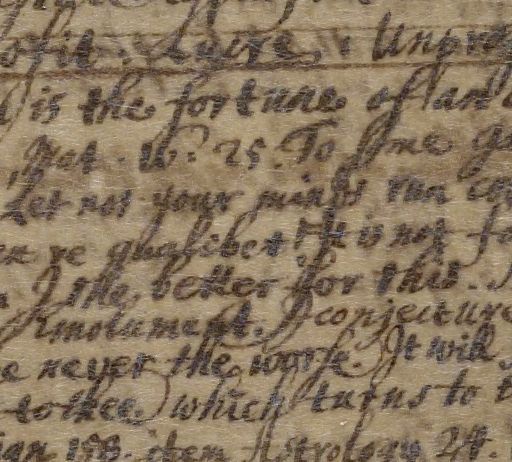 ofit. Lucre, Unpro
is the fortune of an
Mat. 10. 25. To some
Let not your minds run
en re qualibet. It is not fo
I the better for this.
Emolument. I conjecture
e never the worse. It will
to thee. which turns to t
158. item Astrology 24.